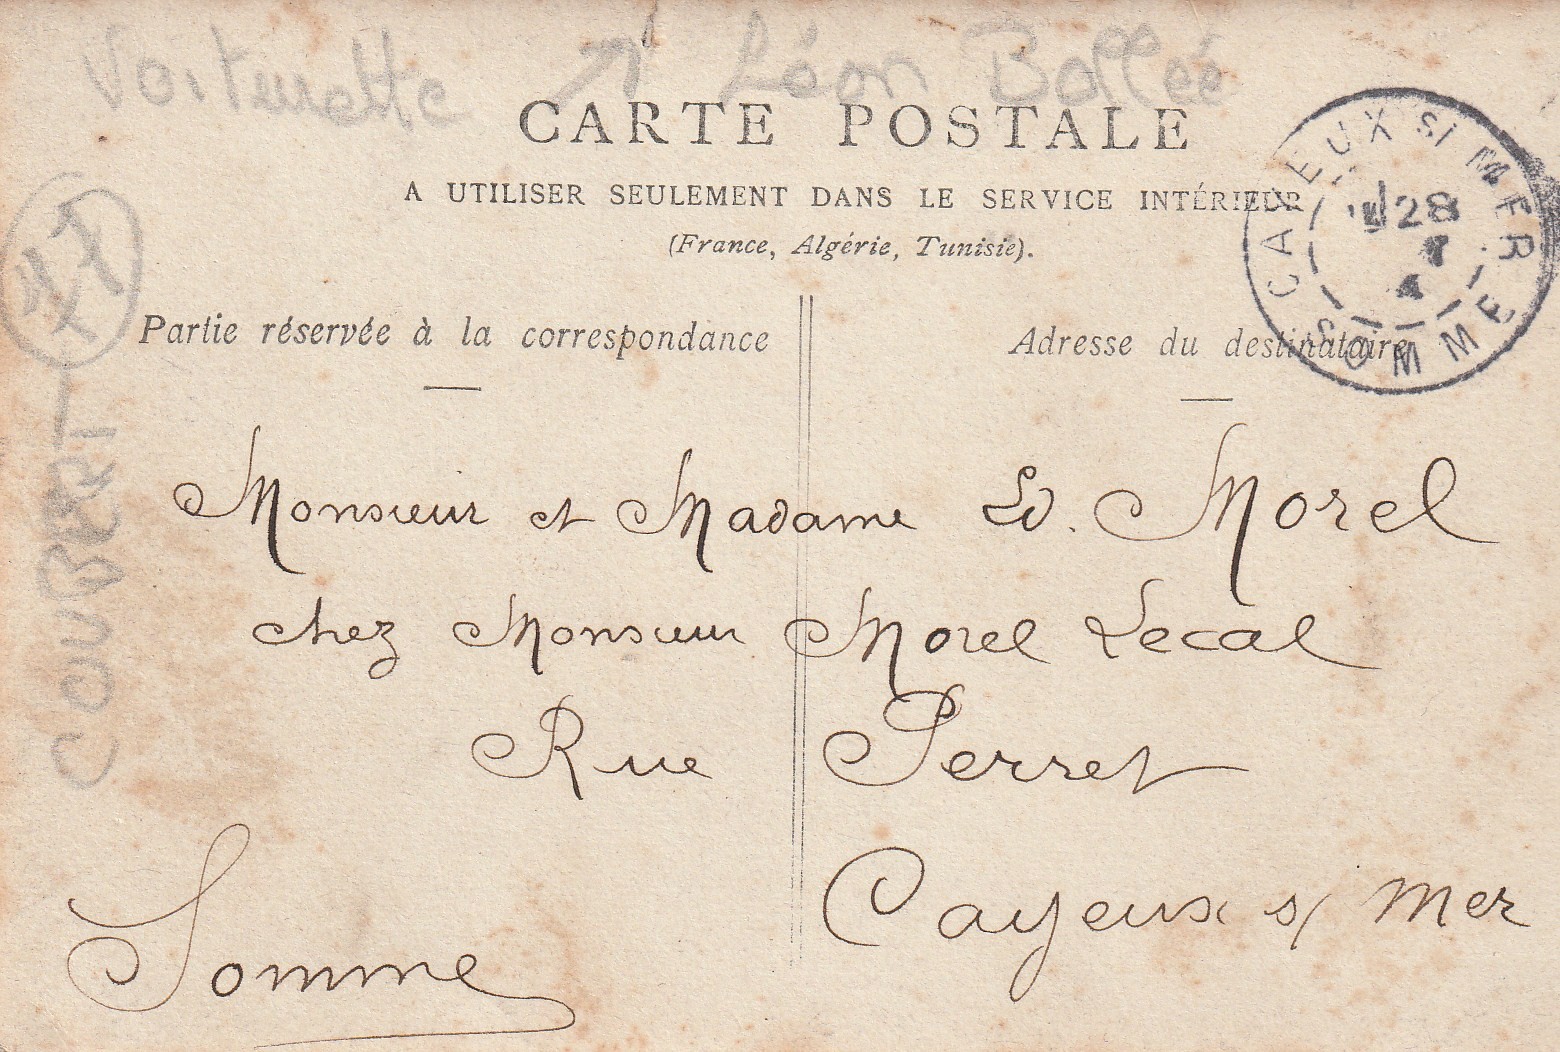 Voiturette Léon Bollée
CARTE POSTALE
A UTILISER SEULEMENT DANS LE SERVICE INTÉRIEUR
(France, Algérie, Tunisie).
CAYEUX S/ MER
28
7
4
SOMME
77
COUBERT
Partie réservée à la correspondance
Adresse du destinataire
Monsieur et Madame Ed. Morel
chez Monsieur Morel Lecal
Rue Perret
Cayeux s/ Mer
Somme